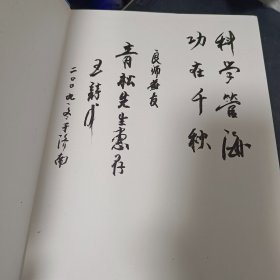 科学管海
功在千秋
良师益友
青松先生惠存
王诗
二〇〇九.文.于济南